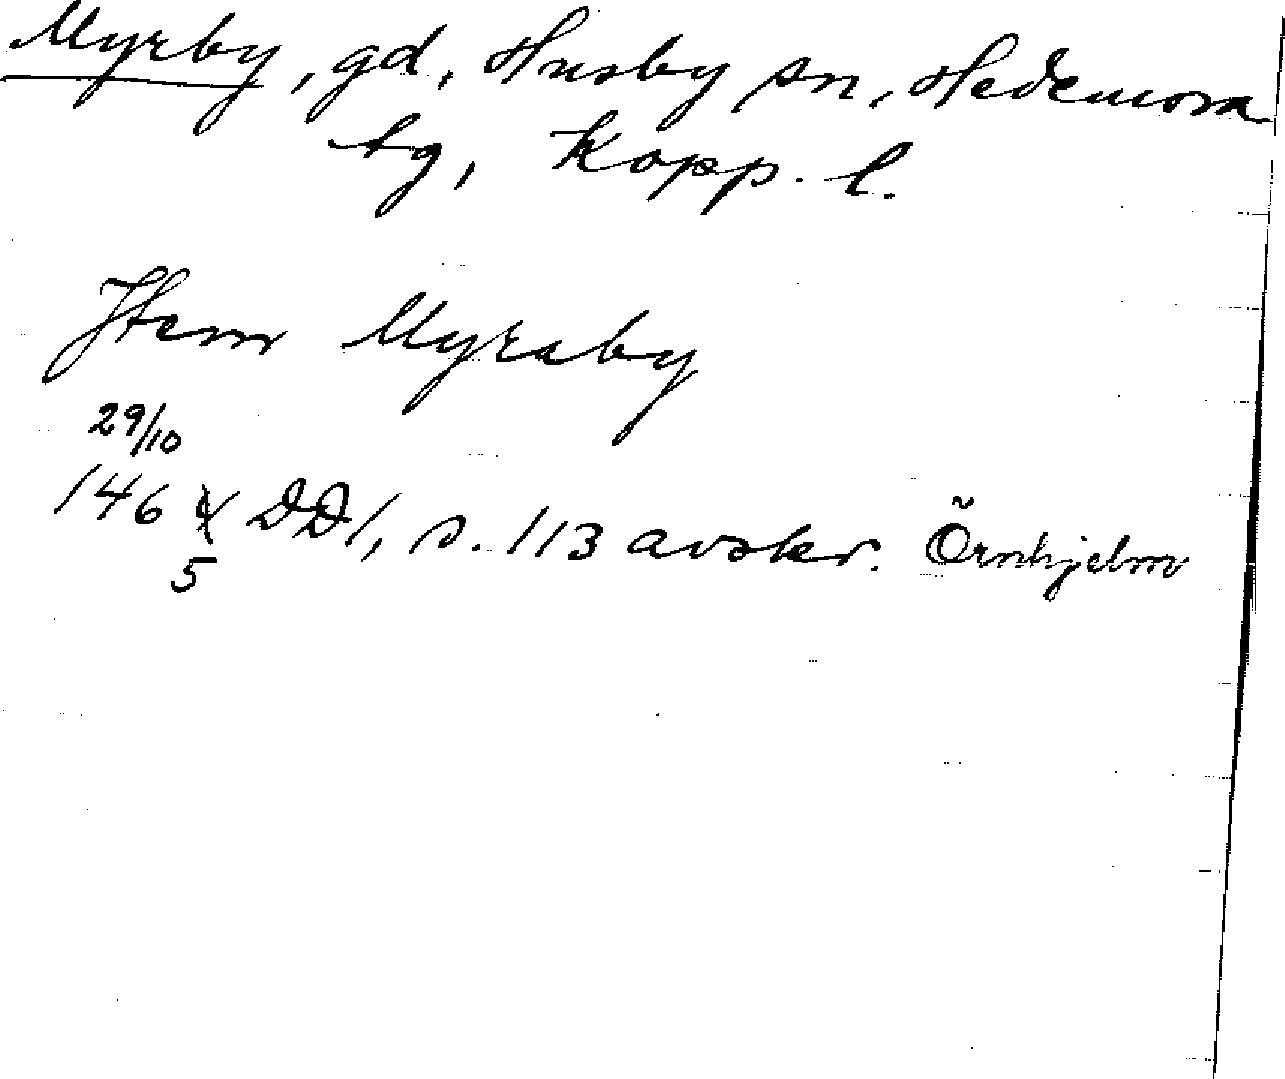 Myrby, gd, Husby sn, Hedemora
tg, Kopp. l.
Item Myraby
29/10
146 DD1, s. 113 avskr. Örnhjelm
5